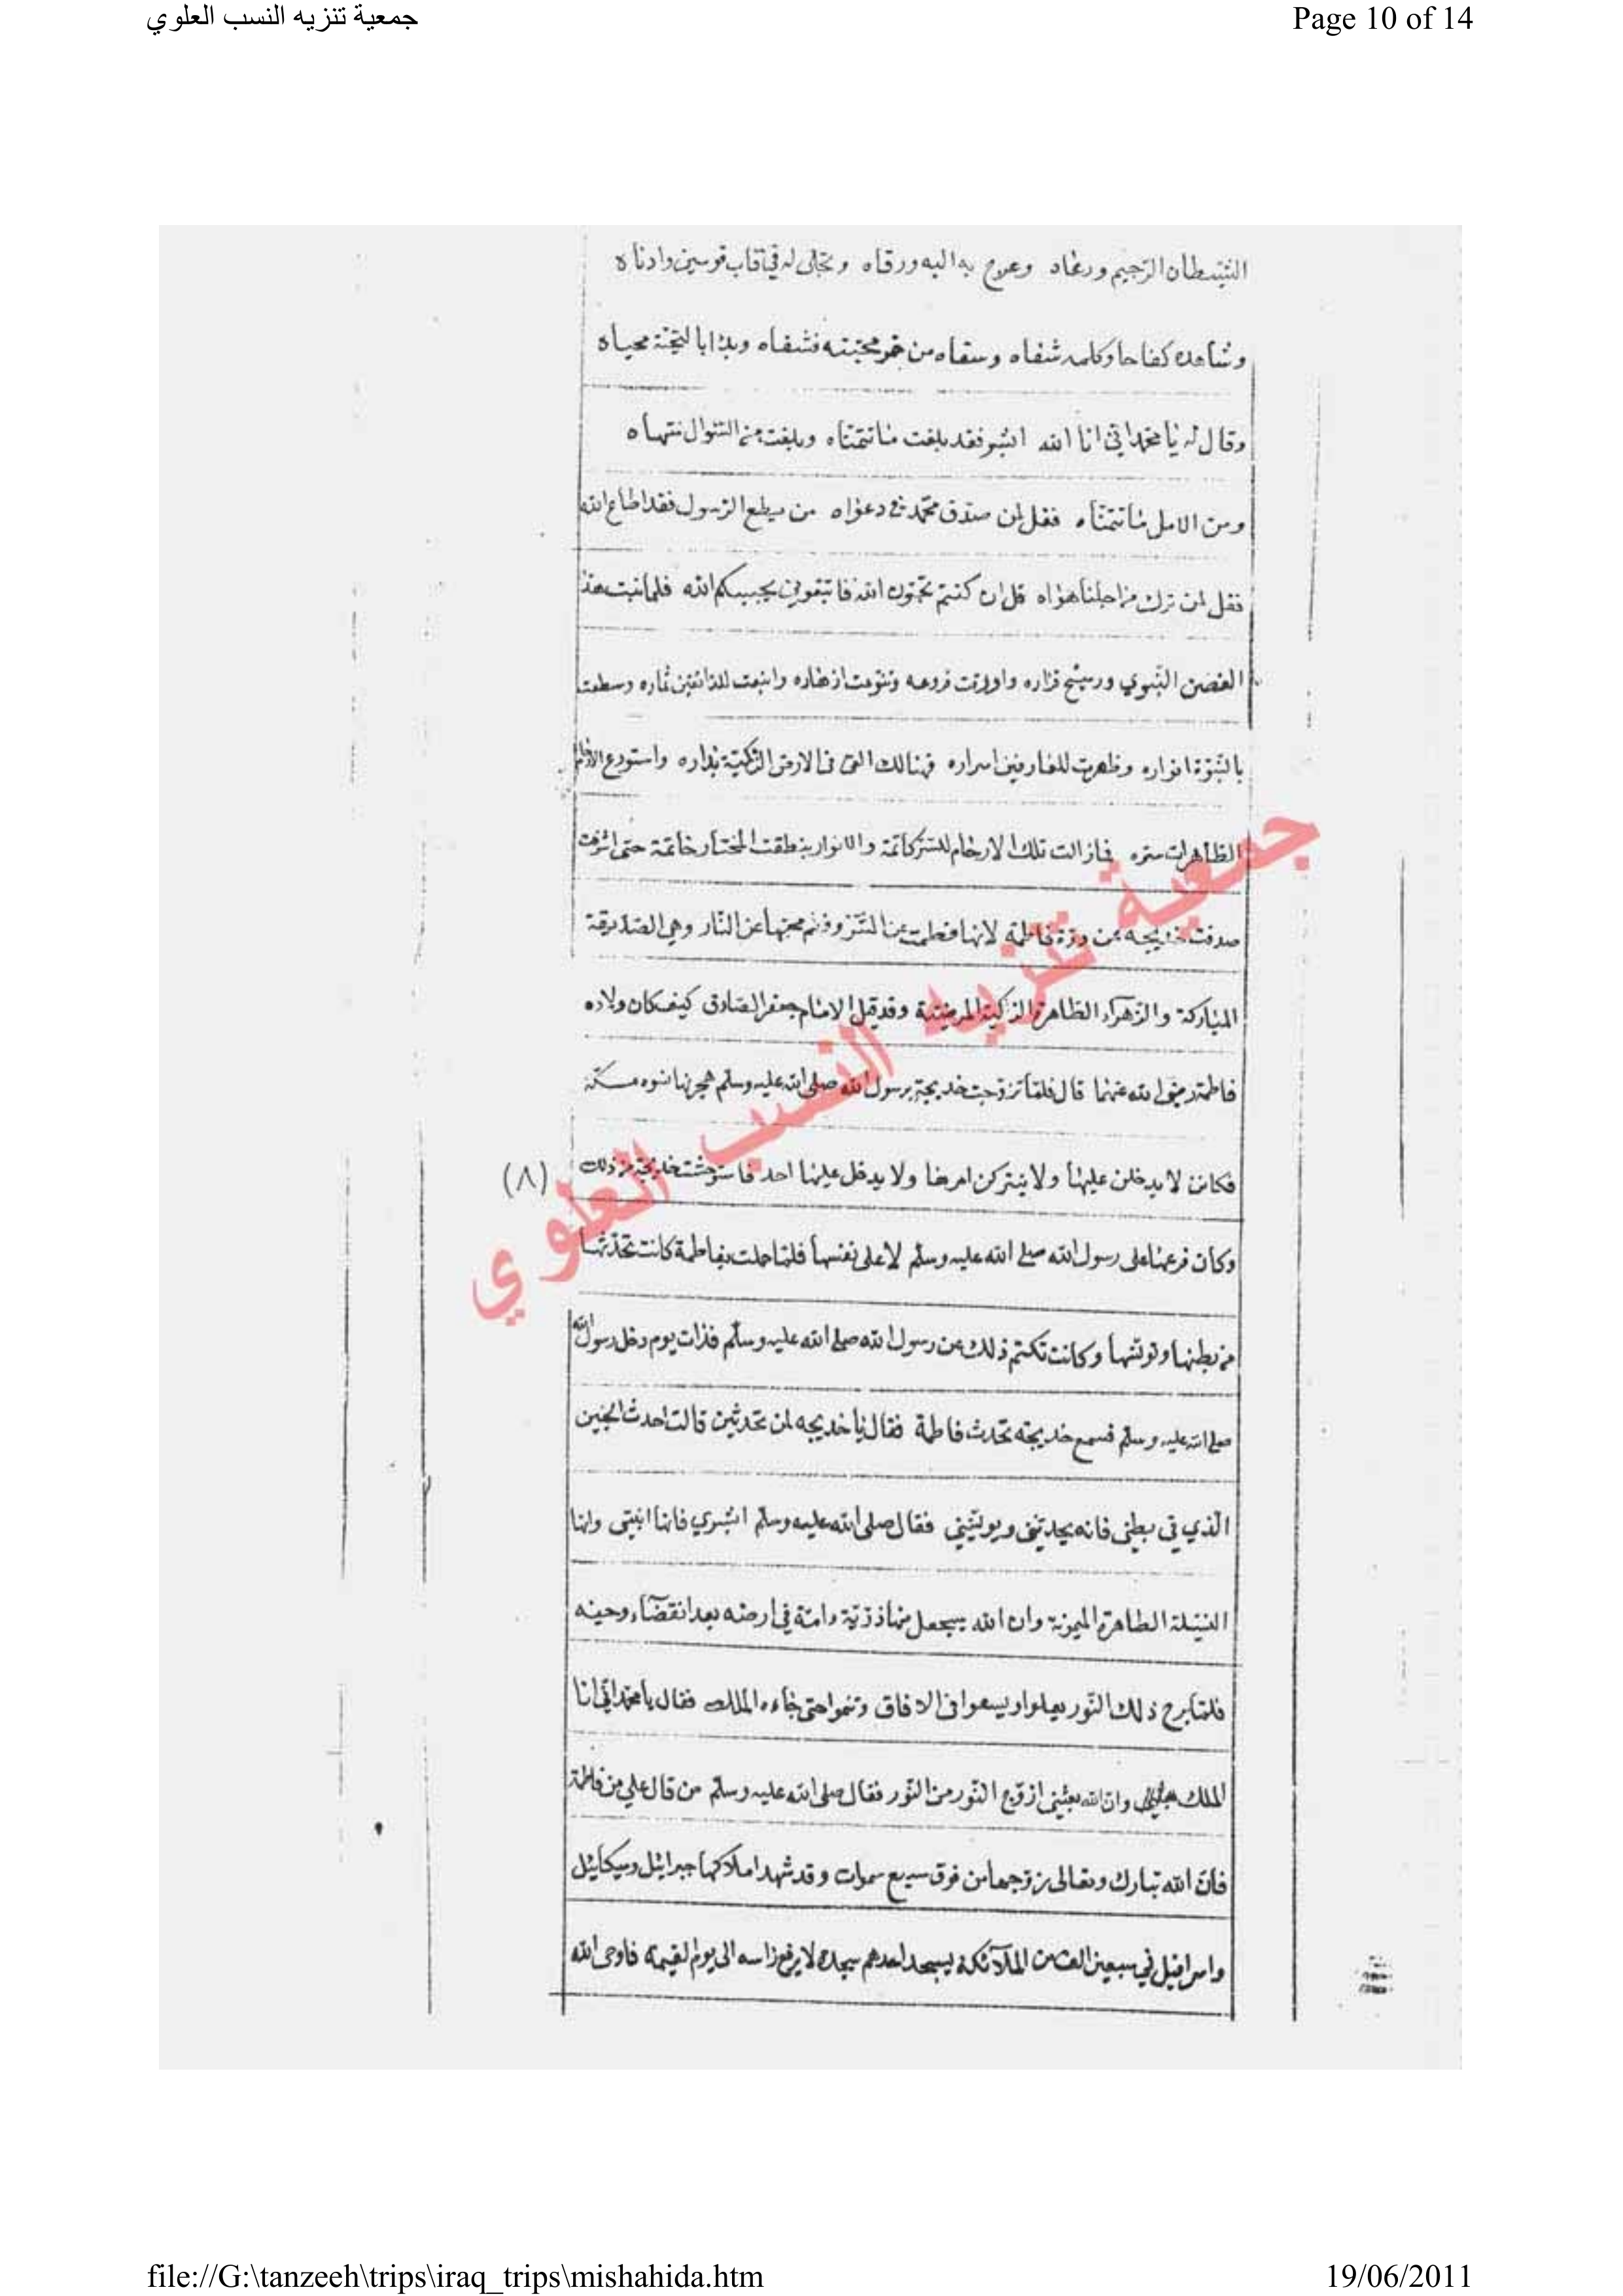 جمعية تنزيه النسب العلوي
Page 10 of 14
الشيطان الرجيم ورعاه وعرج به اليه ورقاه وتجلى له في قاب قوسين وادناه
وشاهده كفاحا وكلمه شفاه وسقاه من خمر محبته فشفاه وبدا بالتحية محياه
وقال له يا محمد اني انا الله ابشر فقد بلغت ما تتمناه وبلغت من السؤال منتهاه
ومن الامل ما تتمناه فقل لمن صدق محمد في دعواه من يطع الرسول فقد اطاع الله
فقل لمن ترك من اجلنا هواه قل ان كنتم تحبون الله فاتبعوني يحببكم الله فلما نبت هذا
الغصن النبوي ورسخ قراره واورقت فروعه وتنوعت ازهاره واينعت للذائقين ثماره وسطعت
بالنبوة انواره وظهرت للعارفين اسراره فهنالك القى في الارض الزكية بذاره واستودع الارحام
الطاهرات سره فما زالت تلك الارحام للسر كاتمة والانوار بنطقت المختار خاتمة حتى اشرقت
صدفت خديجه عن درة فاطمة لانها فطمت عن الشر وفطم محبها عن النار وهي الصديقة
المباركة والزهراء الطاهرة الزكية المرضية وقد قيل الامام جعفر الصادق كيف كان ولاده
فاطمة رضي الله عنها قال فلما تزوجت خديجة برسول الله صلى الله عليه وسلم هجرنها نسوه مكة
فكانن لا يدخلن عليها ولا يتركن امرها ولا يدخل عليها احد فاستوحشت خديجة من ذلك
(٨)
وكان فرعها على رسول الله صلى الله عليه وسلم لا على نفسها فلما حملت بفاطمة كانت تحدثها
من بطنها وتونسها وكانت تكتم ذلك عن رسول الله صلى الله عليه وسلم فذات يوم دخل رسول الله
صلى الله عليه وسلم فسمع خديجة تحدث فاطمة فقال يا خديجه لمن تحدثين قالت احدث الجنين
الذي في بطني فانه يحدثني ويونسني فقال صلى الله عليه وسلم ابشري فانها ابنتي وانها
النسلة الطاهرة الميمونة وان الله سيجعل منها ذرية وامة في ارضه بعد انقضاء وحيه
فلما برح ذلك النور يعلوا ويسعوا في الافاق وتنموا حتى جاءه الملك فقال يا محمد اني انا
الملك وان الله بعثني ازوج النور من النور فقال صلى الله عليه وسلم من قال علي من فاطمة
فان الله تبارك وتعالى زوجها من فوق سبع سموات وقد شهد املاكها جبرائيل وميكائيل
واسرافيل في سبعين الف من الملائكة يسجد احدهم سجدة لا يرفع راسه الى يوم القيمه فاوحى الله
جمعية تنزيه النسب العلوي
file://G:\tanzeeh\trips\iraq_trips\mishahida.htm
19/06/2011